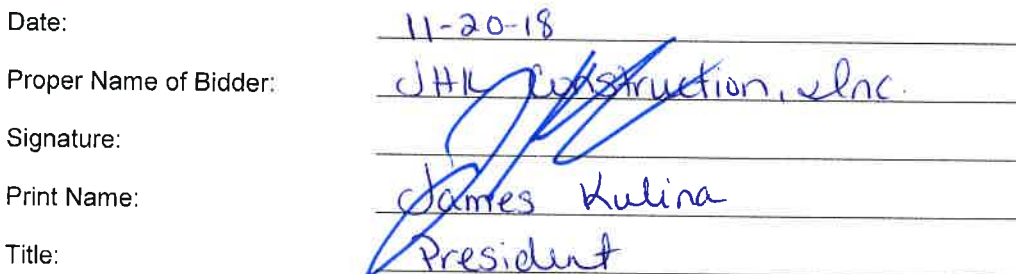 Date: 11-20-18
Proper Name of Bidder: JHK Construction, Inc.
Signature:
Print Name: James Kulina
Title: President